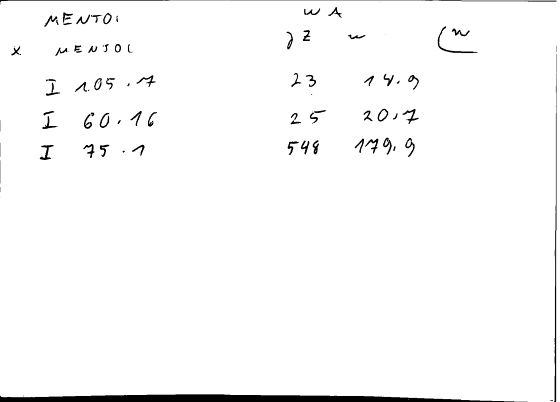 MENTOI WA
x MENTOI
I 105.7 23 18.9
I 60.16 25 20.7
I 75.1 548 179.9